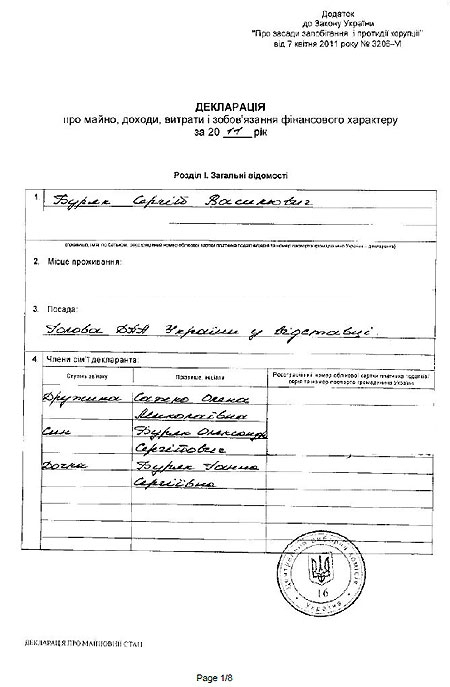 Додаток
до Закону України
"Про засади запобігання і протидії корупції"
від 7 квітня 2011 року № 3206–VI
ДЕКЛАРАЦІЯ
про майно, доходи, витрати і зобов'язання фінансового характеру
за 20 11 рік
Розділ I. Загальні відомості
1. Буряк Сергій Васильович
(прізвище, ім'я, по батькові, реєстраційний номер облікової картки платника податків та номер паспорта громадянина України – декларанта)
2. Місце проживання:
3. Посада:
Голова ДПА України у відставці.
4. Члени сім'ї декларанта:
Ступінь зв'язку Прізвище, ініціали Реєстраційний номер облікової картки платника податків/серія та номер паспорта громадянина України
Дружина Сапко Олена
Миколаївна
Син Буряк Олександр
Сергійович
Дочка Буряк Ганна
Сергіївна
Центральна виборча комісія
16
Україна
ДЕКЛАРАЦІЯ ПРО МАЙНОВИЙ СТАН
Page 1/8